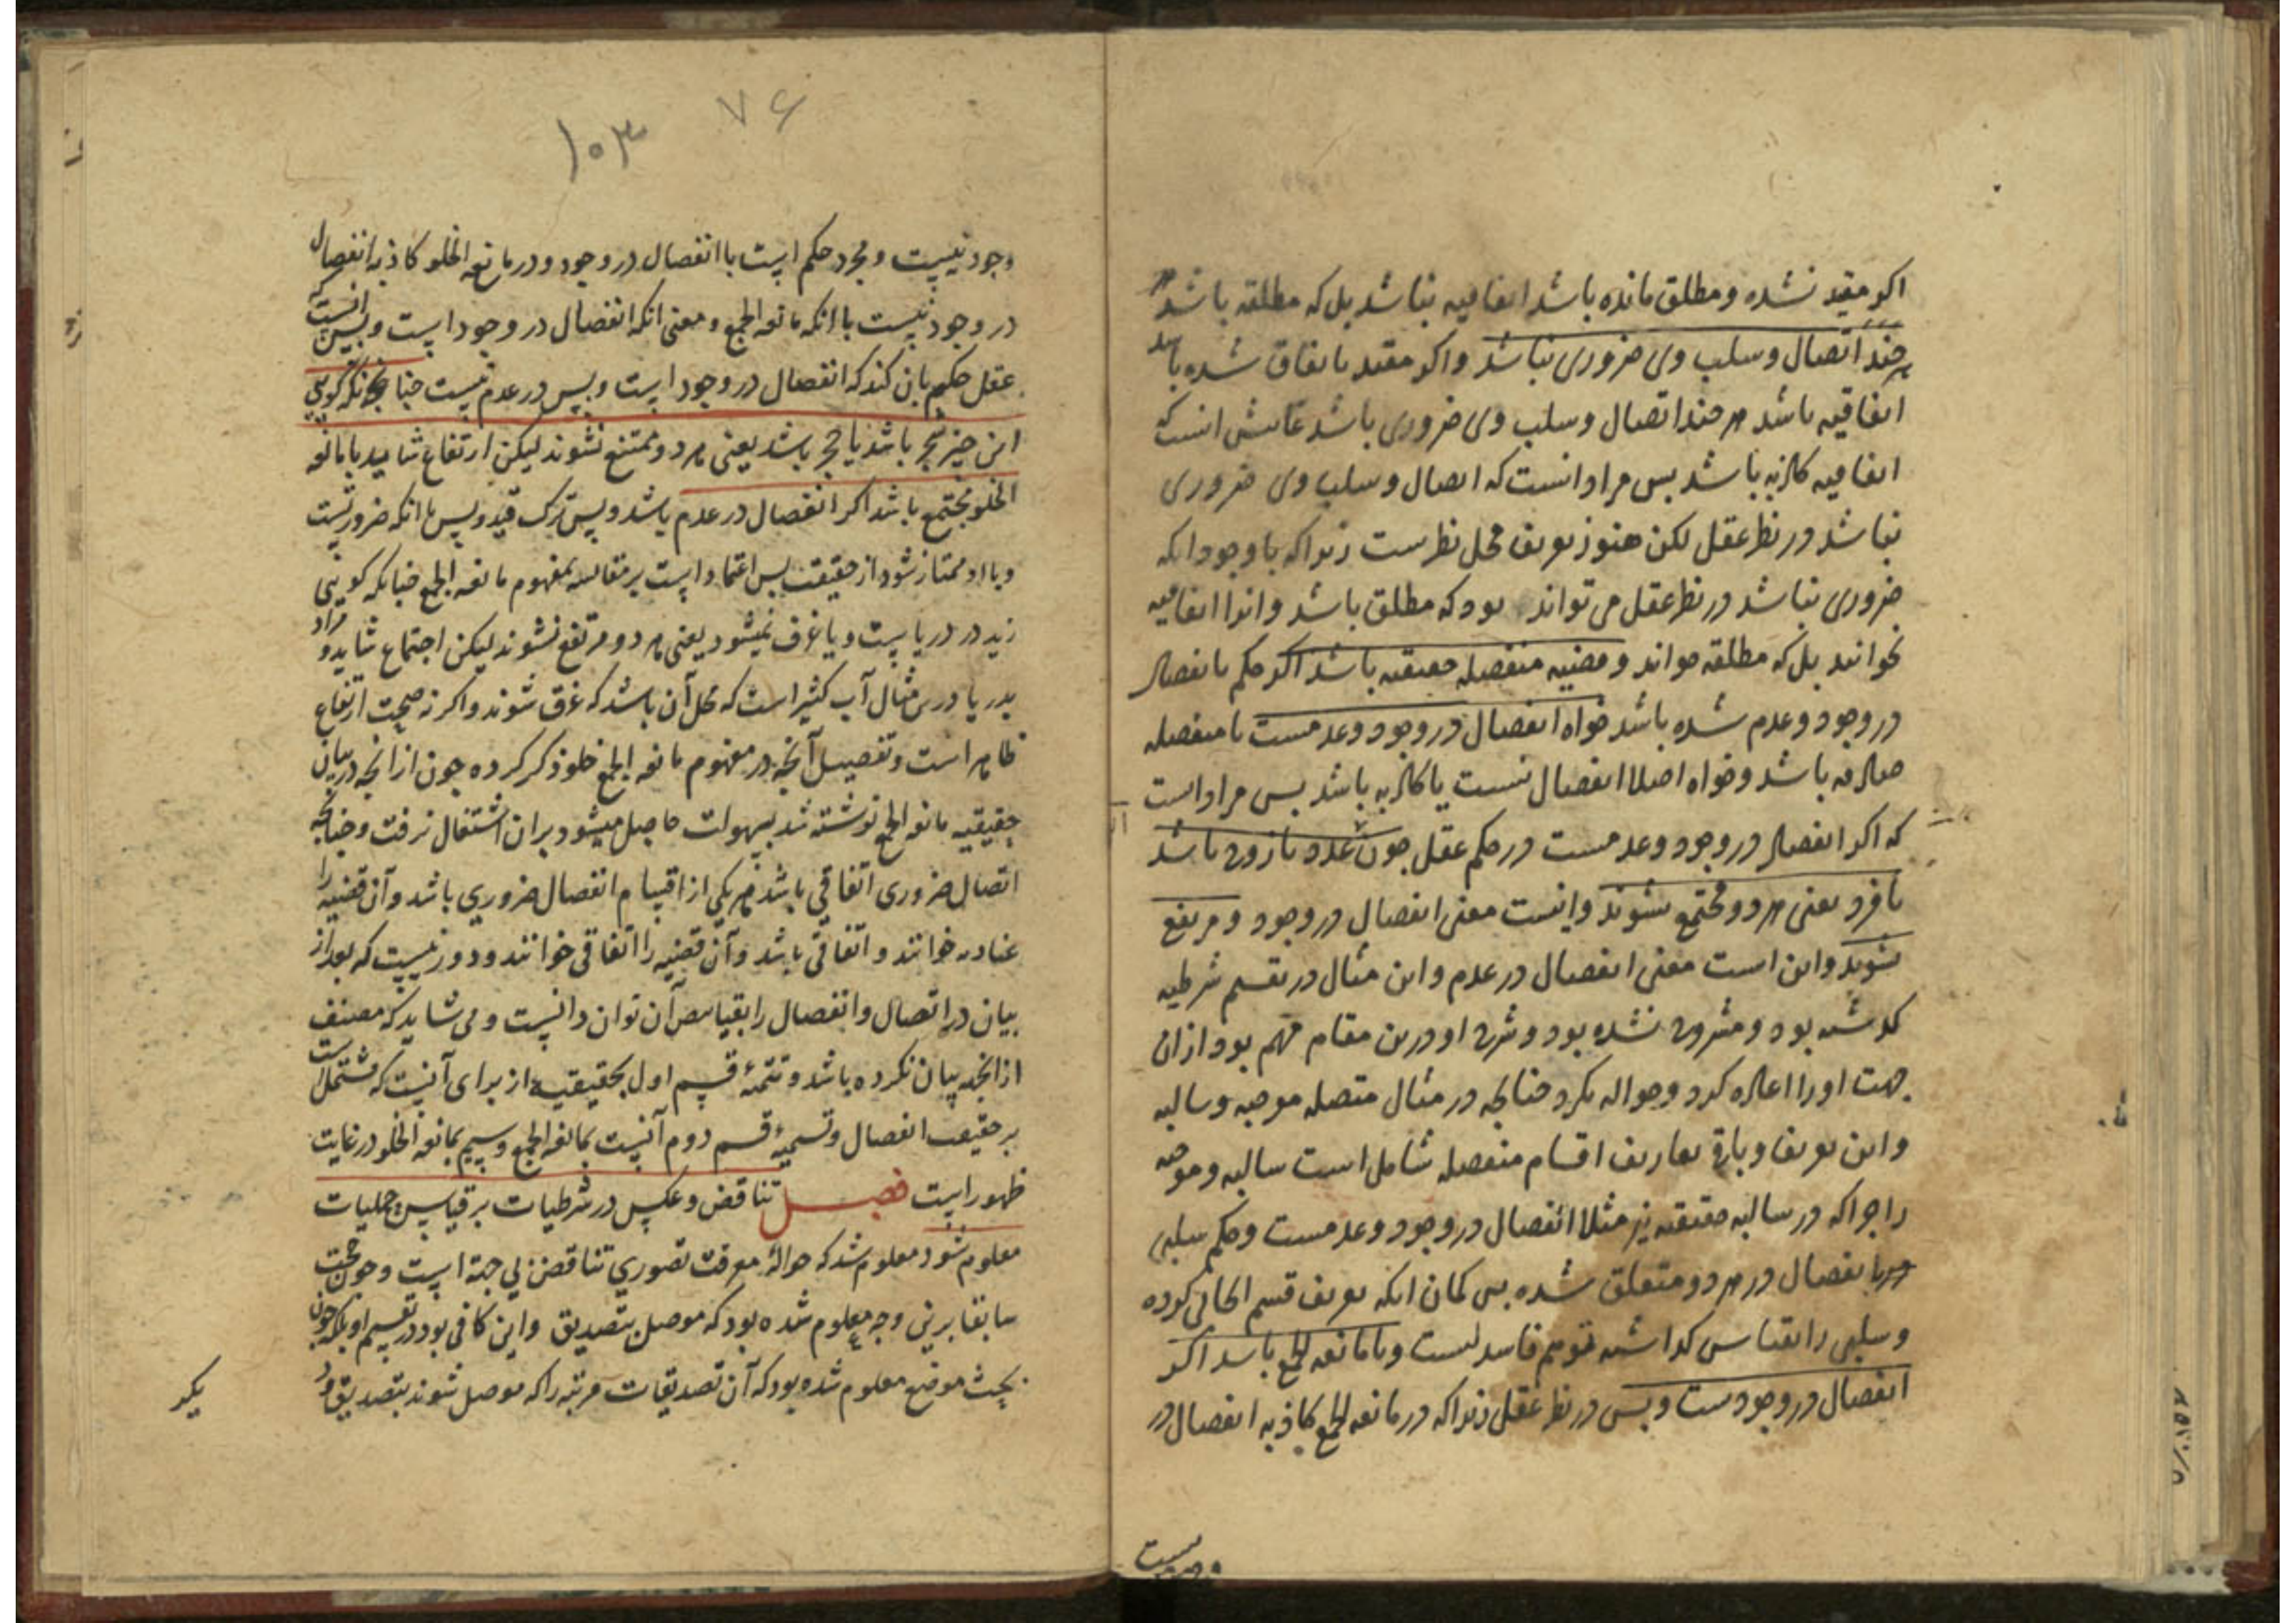 اکر مقید نشده و مطلق مانده باشد اتفاقیه نباشد بل که مطلقه باشد
هر چند اتصال و سلب وی ضروری نباشد و اکر مقید باتفاق شده باشد
اتفاقیه باشد هر چند اتصال و سلب وی ضروری باشد غایتش انست که
اتفاقیه کاذبه باشد پس مراد انست که اتصال و سلب وی ضروری
نباشد در نظر عقل لکن هنوز تعریف محل نظرست زیرا که با وجود انکه
ضروری نباشد در نظر عقل می تواند بود که مطلق باشد و انرا اتفاقیه
نخوانند بل که مطلقه خوانند و قضیه منفصله حقیقیه باشد اکر حکم بانفصال
در وجود و عدم شده باشد خواه انفصال در وجود و عدمست تا منفصله
صادقه باشد و خواه اصلا انفصال نیست یا کاذبه باشد پس مراد است
که اکر انفصال در وجود و عدمست در حکم عقل چون عدد یا زوج باشد
یا فرد یعنی هر دو مجتمع نشوند و اینست معنی انفصال در وجود و مرتفع
نشوند و این است معنی انفصال در عدم و این مثال در تقسیم شرطیه
کذشته بود و مشروح نشده بود و شرح او درین مقام مهم بود ازان
جهت اورا اعاده کرد و حواله نکرد چنانچه در مثال متصله موجبه و سالبه
و این تعریف و باقی تعاریف اقسام منفصله شامل است سالبه و موجبه
را چرا که در سالبه حقیقیه نیز مثلا انفصال در وجود و عدمست و حکم سلبی
بانفصال در هر دو متعلق شده پس کمان انکه تعریف قسم ایجابی کرده
و سلبی را بقیاس کذاشته توهم فاسد نیست و یا مانعه الجمع باشد اکر
انفصال در وجودست و بس در نظر عقل زیرا که در مانعه الجمع کاذبه انفصال در
۷۶
۱۰۳
وجود نیست و مجرد حکم است باانفصال در وجود و در مانعه الخلو کاذبه انفصال
در وجود نیست باانکه مانعه الجمع و معنی انکه انفصال در وجود است و بس انست که
عقل حکم بان کند که انفصال در وجود است و بس در عدم نیست چنانچه انکه کویی
این چیز شجر باشد یا حجر باشد یعنی هر دو ممتنع نشوند لیکن ارتفاع شاید یا مانعه
الخلو مجتمع باشد اکر انفصال در عدم باشد و بس ترک قید و بس باانکه ضروریست
و با او ممتاز شود از حقیقیه پس اعتماد است بر مقایسه بمفهوم مانعه الجمع چنانکه کویی
زید در دریاست و یا غرق نمیشود یعنی هر دو مرتفع نشوند لیکن اجتماع شاید و مراد
بدریا درین مثال آب کثیر است که محل آن باشد که غرق شوند و اکر نه صحت ارتفاع
ظاهر است و تفصیل آنچه در مفهوم مانعه الجمع خلو ذکر کرده چون ازانچه در بیان
حقیقیه مانعه الجمع نوشته شد بسهولت حاصل میشود بران اشتغال نرفت و چنانچه
اتصال ضروری اتفاقی باشد هر یکی از اقسام انفصال ضروری باشد و آن قضیه را
عنادیه خوانند و اتفاقی باشد و آن قضیه را اتفاقی خوانند و دور نیست که بعد از
بیان در اتصال و انفصال را بقیاس آن توان دانست و می شاید که مصنف
ازانجهه بیان نکرده باشد و تتمهٔ قسم اول بحقیقیه از برای آنست که مشتمل است
بر حقیقت انفصال و تسمیهٔ قسم دوم آنست بمانعه الجمع و سیم بمانعه الخلو در غایت
ظهور است فصل تناقض و عکس در شرطیات بر قیاس حملیات
معلوم شود معلوم شد که حوالهٔ معرفت تصوری تناقض بی جهة است و چون حجت
سابقا برین وجه معلوم شده بود که موصل بتصدیق و این کافی بود در تقسیم او بلکه چون
بحث موضع معلوم شده بود که آن تصدیقات مرتبه را که موصل شوند بتصدیق